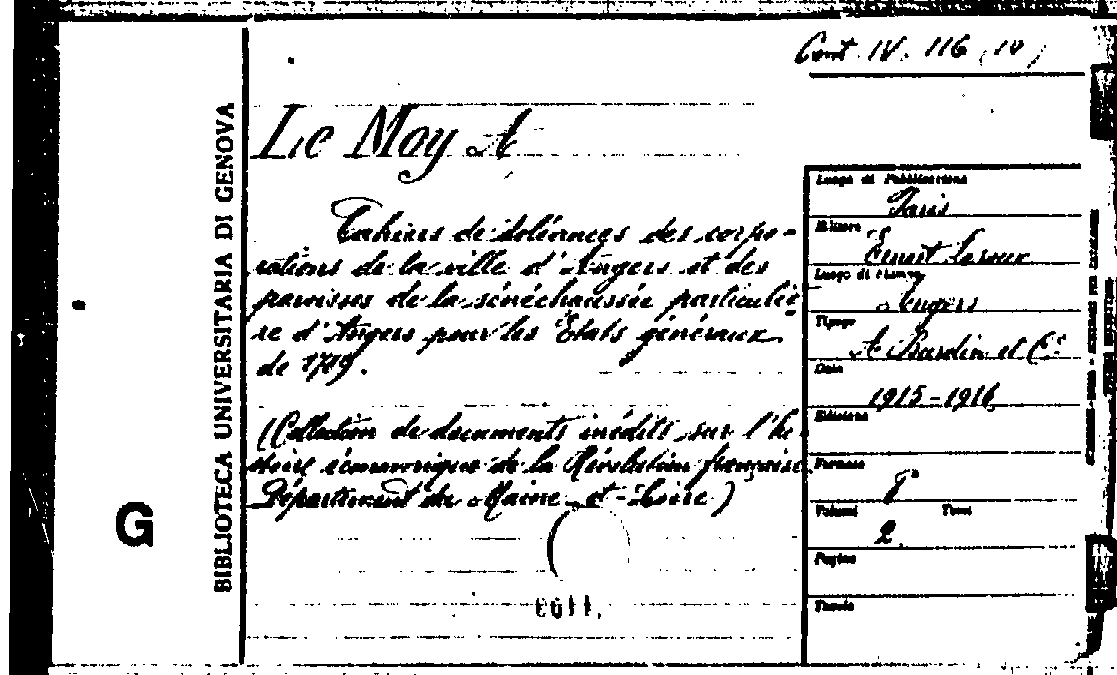 Cont. IV. 116 (10)
BIBLIOTECA UNIVERSITARIA DI GENOVA
G
Le Moy A
Cahiers de doléances des corpo-
rations de la ville d'Angers et des
paroisses de la sénéchaussée particuliè-
re d'Angers pour les États généraux
de 1789.
(Collection de documents inédits sur l'hi-
stoire économique de la Révolution française
Département de Maine-et-Loire)
Luogo di Pubblicazione
Paris
Editore
Ernest Leroux
Luogo di stampa
Angers
Tipogr.
A Burdin et Cie
Data
1915-1916
Edizione
Formato
8°
Volumi Tomi
2.
Pagine
Tavole